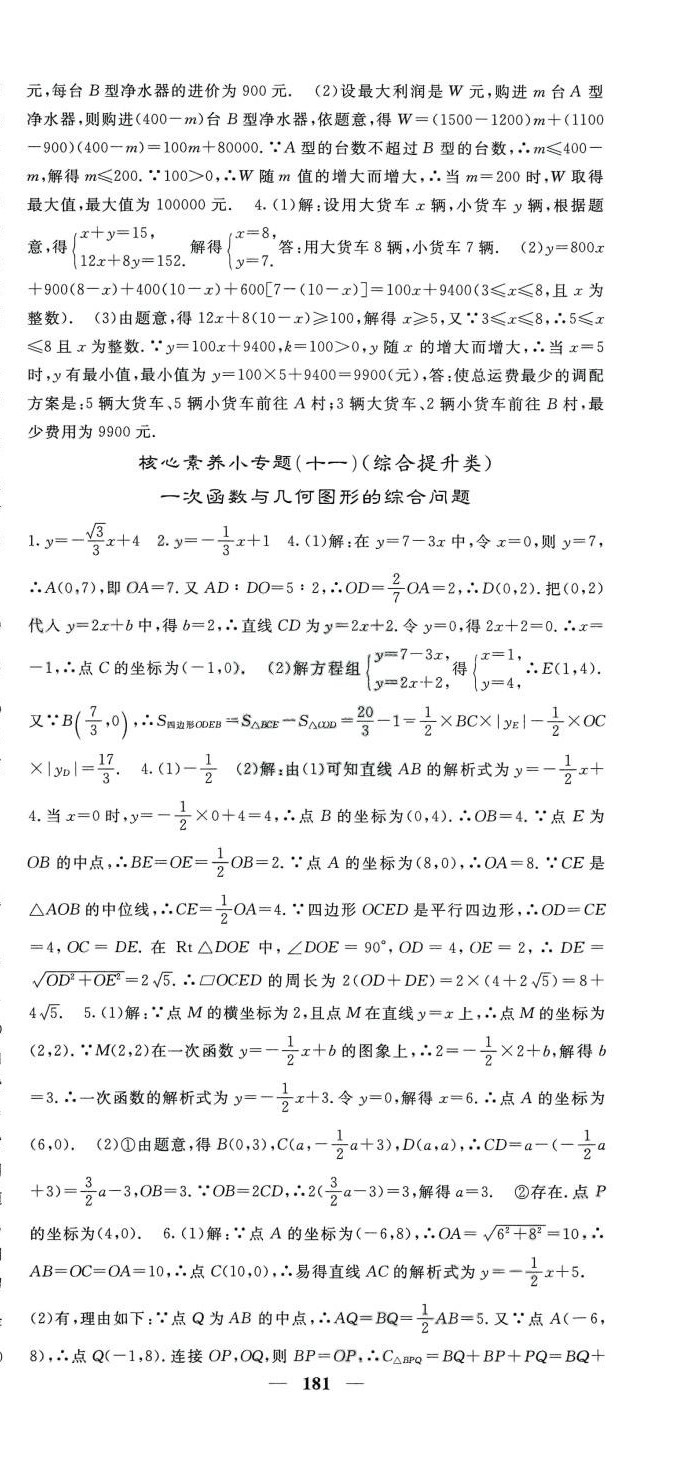 元,每台 B 型净水器的进价为 900 元. (2)设最大利润是 W 元,购进 m 台 A 型
净水器,则购进(400-m)台 B 型净水器,依题意,得 W=(1500-1200)m+(1100
-900)(400-m)=100m+80000.∵A 型的台数不超过 B 型的台数,∴m≤400-
m,解得 m≤200.∵100>0,∴W 随 m 值的增大而增大,∴当 m=200 时,W 取得
最大值,最大值为 100000 元. 4.(1)解:设用大货车 x 辆,小货车 y 辆,根据题
意,得{x+y=15, 12x+8y=152. 解得{x=8, y=7. 答:用大货车 8 辆,小货车 7 辆. (2)y=800x
+900(8-x)+400(10-x)+600[7-(10-x)]=100x+9400(3≤x≤8,且 x 为
整数). (3)由题意,得 12x+8(10-x)≥100,解得 x≥5,又∵3≤x≤8,∴5≤x
≤8 且 x 为整数.∵y=100x+9400,k=100>0,y 随 x 的增大而增大,∴当 x=5
时,y 有最小值,最小值为 y=100×5+9400=9900(元),答:使总运费最少的调配
方案是:5 辆大货车、5 辆小货车前往 A 村;3 辆大货车、2 辆小货车前往 B 村,最
少费用为 9900 元.
核心素养小专题(十一)(综合提升类)
一次函数与几何图形的综合问题
1. y=-√3/3x+4 2. y=-1/3x+1 4.(1)解:在 y=7-3x 中,令 x=0,则 y=7,
∴A(0,7),即 OA=7.又 AD∶DO=5∶2,∴OD=2/7OA=2,∴D(0,2).把(0,2)
代入 y=2x+b 中,得 b=2,∴直线 CD 为 y=2x+2.令 y=0,得 2x+2=0.∴x=
-1,∴点 C 的坐标为(-1,0). (2)解方程组{y=7-3x, y=2x+2, 得{x=1, y=4, ∴E(1,4).
又∵B(7/3,0),∴S四边形ODEB=S△BCE-S△COD=20/3-1=1/2×BC×|yE|-1/2×OC
×|yD|=17/3. 4.(1)-1/2 (2)解:由(1)可知直线 AB 的解析式为 y=-1/2x+
4.当 x=0 时,y=-1/2×0+4=4,∴点 B 的坐标为(0,4).∴OB=4.∵点 E 为
OB 的中点,∴BE=OE=1/2OB=2.∵点 A 的坐标为(8,0),∴OA=8.∵CE 是
△AOB 的中位线,∴CE=1/2OA=4.∵四边形 OCED 是平行四边形,∴OD=CE
=4,OC=DE.在 Rt△DOE 中,∠DOE=90°,OD=4,OE=2,∴DE=
√(OD²+OE²)=2√5.∴▱OCED 的周长为 2(OD+DE)=2×(4+2√5)=8+
4√5. 5.(1)解:∵点 M 的横坐标为 2,且点 M 在直线 y=x 上,∴点 M 的坐标为
(2,2).∵M(2,2)在一次函数 y=-1/2x+b 的图象上,∴2=-1/2×2+b,解得 b
=3.∴一次函数的解析式为 y=-1/2x+3.令 y=0,解得 x=6.∴点 A 的坐标为
(6,0). (2)①由题意,得 B(0,3),C(a,-1/2a+3),D(a,a),∴CD=a-(-1/2a
+3)=3/2a-3,OB=3.∵OB=2CD,∴2(3/2a-3)=3,解得 a=3. ②存在.点 P
的坐标为(4,0). 6.(1)解:∵点 A 的坐标为(-6,8),∴OA=√(6²+8²)=10,∴
AB=OC=OA=10,∴点 C(10,0),∴易得直线 AC 的解析式为 y=-1/2x+5.
(2)有,理由如下:∵点 Q 为 AB 的中点,∴AQ=BQ=1/2AB=5.又∵点 A(-6,
8),∴点 Q(-1,8).连接 OP,OQ,则 BP=OP,∴C△BPQ=BQ+BP+PQ=BQ+
— 181 —